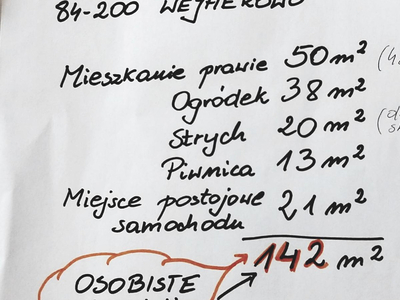 84-200 WEJHEROWO
Mieszkanie prawie 50 m²
Ogródek 38 m²
Strych 20 m²
Piwnica 13 m²
Miejsce postojowe
samochodu 21 m²
142 m²
OSOBISTE